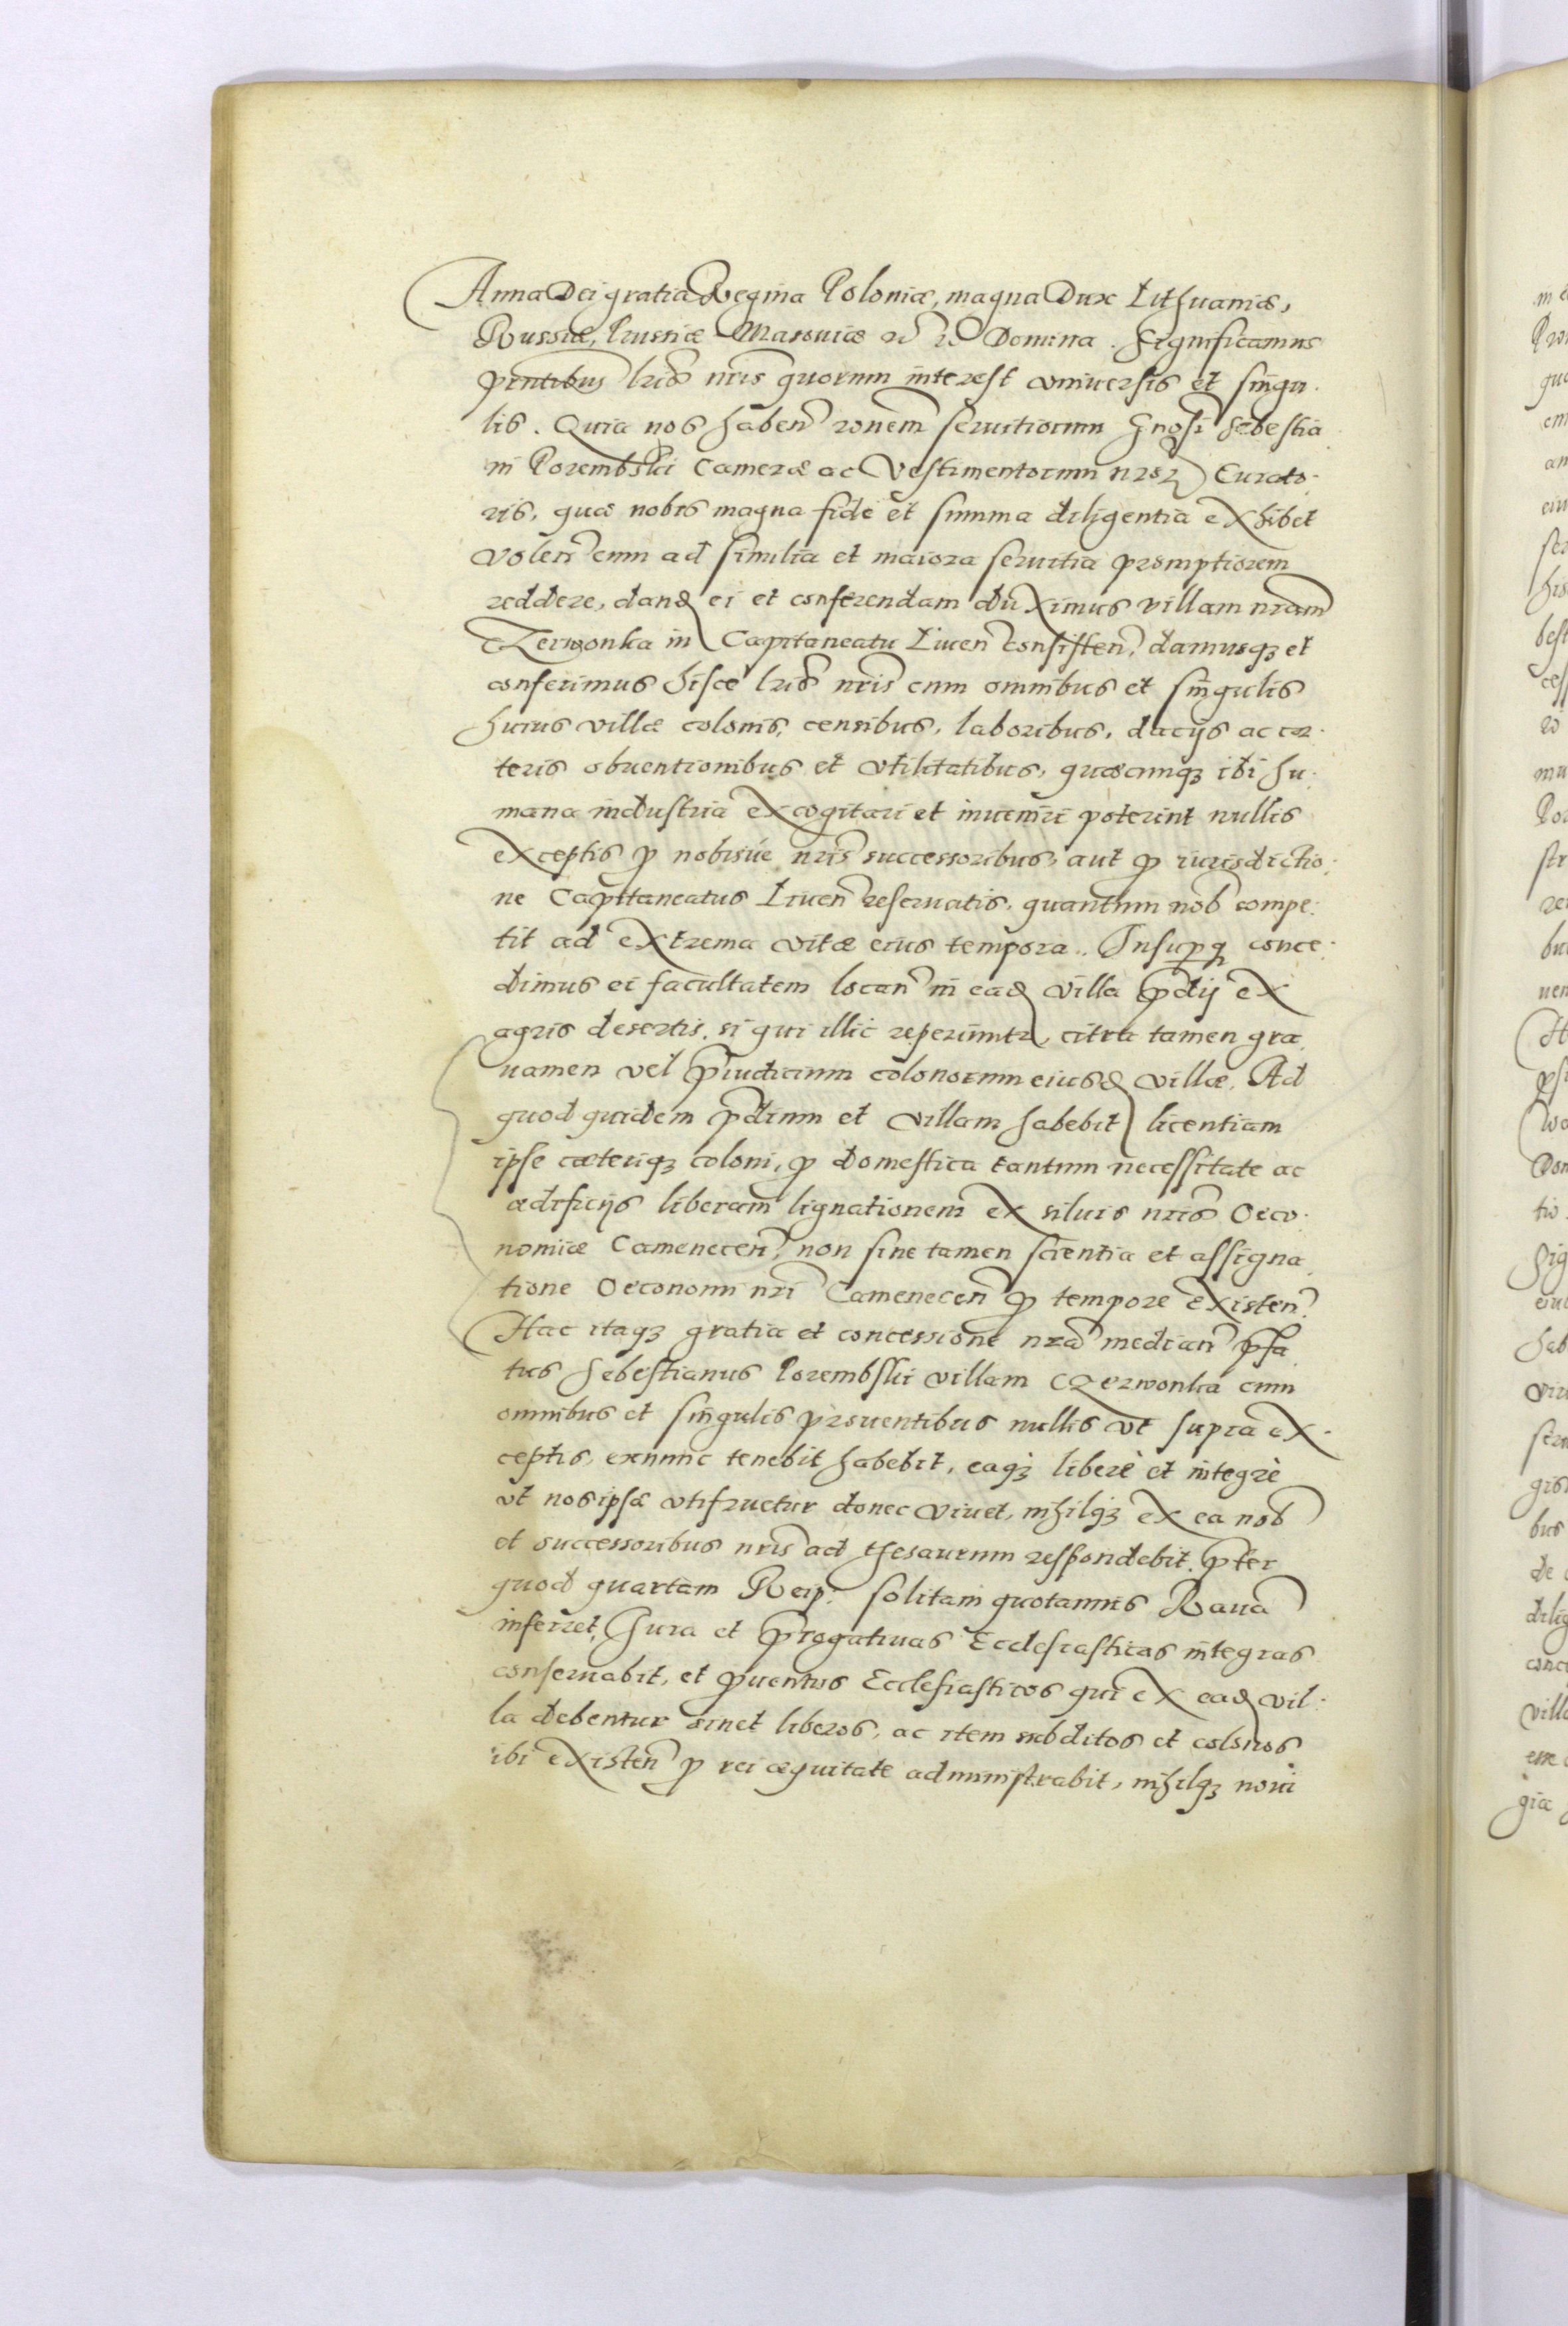 Anna Dei gratia Regina Poloniæ, magna Dux Lithuaniæ,
Russiæ, Prussiæ Masouiæ zc zc Domina. Significamus
pñtibus lrīs nr̃is quorum interest vniuersis et singu-
lis. Quia nos haben̄ rõnem seruitiorum Gn̄osi Sebestia
ni Porembski Cameræ ac Vestimentorum nr̄or̃ Curato-
ris, quæ nobis magna fide et summa diligentia exhibet
Volen̄ eum ad similia et maiora seruitia promptiorem
reddere, dand̃ ei et conferendam duximus villam nr̃am
Czerwonka in Capitaneatu Liuen̄ consisten̄, damusq3 et
conferimus hisce lrīs nr̃is cum omnibus et singulis
huius villæ colonis, censibus, laboribus, dacijs ac cæ-
teris obuentionibus et vtilitatibus, quæcunq3 ibi hu-
mana industria excogitari et inueniri poterint nullis
exceptis p nobisúe nr̃is successoribus, aut p iurisdictio-
ne Capitaneatus Liuen̄ reseruatis, quantum nob̃ compe-
tit ad extrema vitæ eius tempora. Insuperq3 conce-
dimus ei facultatem locan̄ in ead̃ villa p̃dij ex
agris desertis, si qui illic reperiuntr, citra tamen gra
uamen vel p̃iudicium colonorum eiusd̃ villæ, Ad
quod quidem p̃dium et villam habebit licentiam
ipse cæteriq3 coloni, p domestica tantum necessitate ac
ædificijs liberam lignationem ex siluis nr̃is Oeco-
nomiæ Camenecen̄, non sine tamen scientia et assigna
tione Oeconomi nr̃i Camenecen̄ p tempore existen̄.
Hac itaq3 gratia et concessione nr̃a median̄ p̃fa
tus Sebestianus Porembski villam Czerwonka cum
omnibus et singulis prouentibus nullis vt supra ex-
ceptis, exnunc tenebit habebit, eaq3 liberè et integrè
vt nos ipsæ vtifruetur donec viuet, nihilq3 ex ea nob̃
et successoribus nr̃is ad thesaurum respondebit, p̃ter
quod quartam Reip: solitam quotannis Rauã
inferret, Jura et p̃rogatiuas Ecclesiasticas integras
conseruabit, et puentus Ecclesiasticos qui ex ead̃ vil-
la debentur sinet liberos, ac item subditos et colonos
ibi existen̄ p rei æquitate administrabit, nihilq3 noui